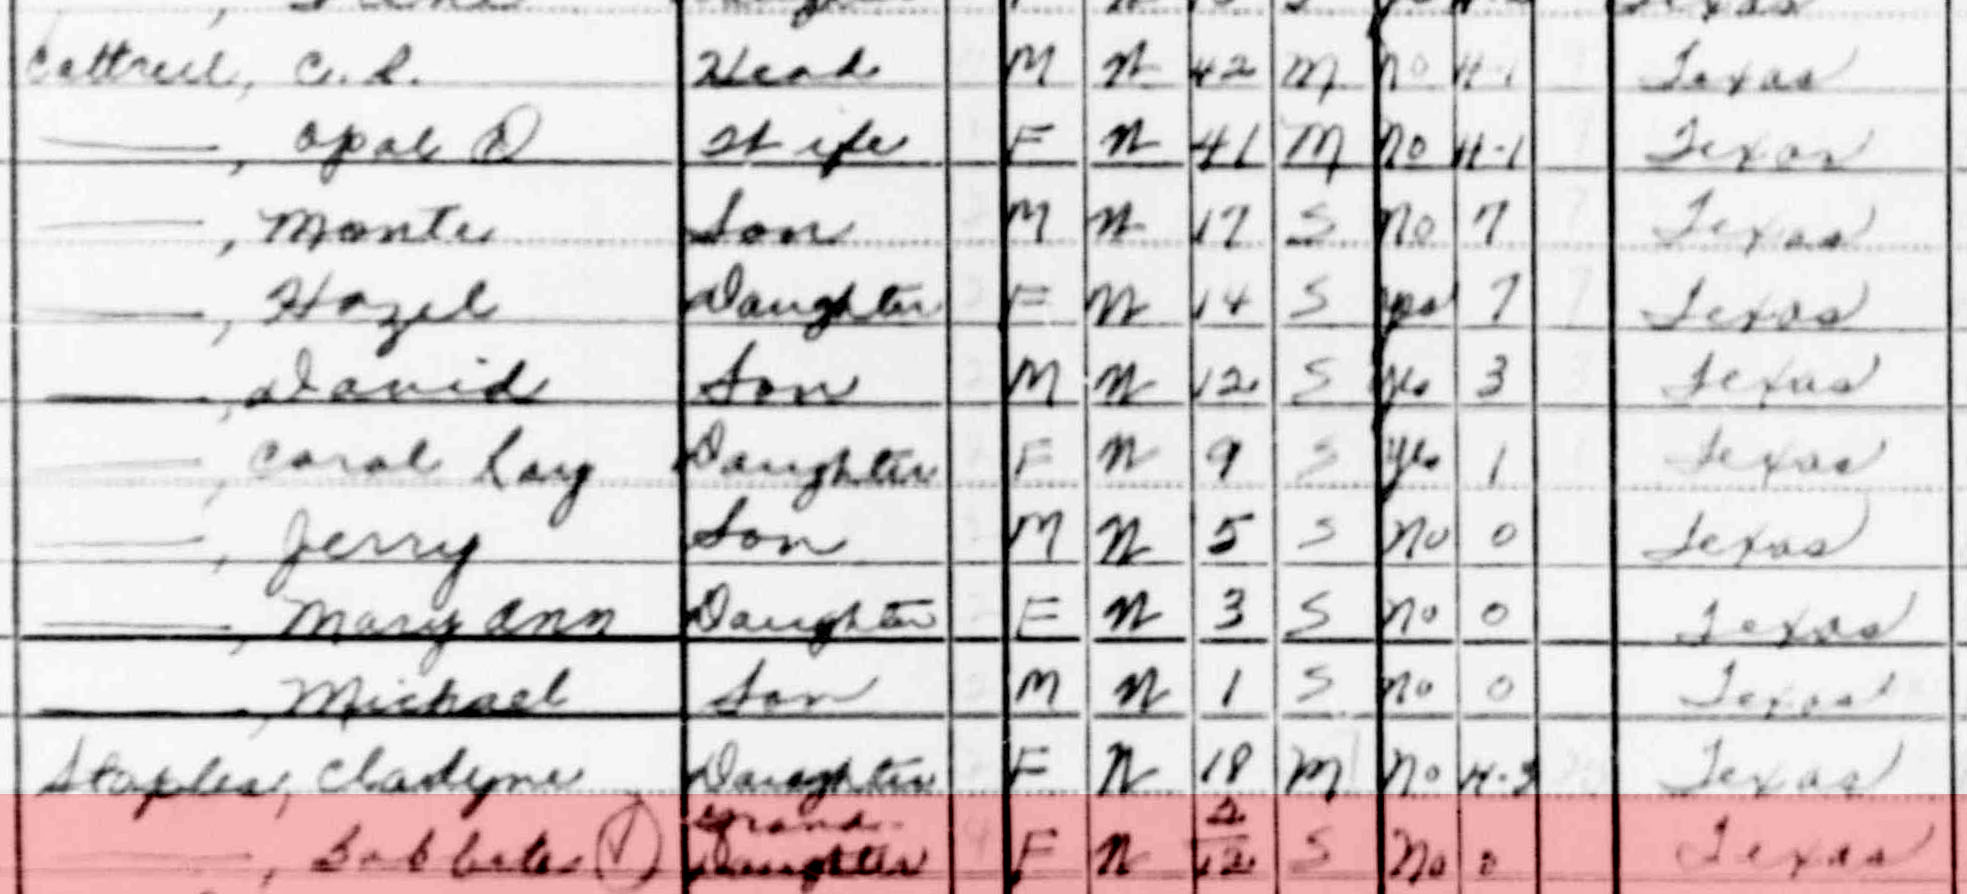 Texas
Cottrell, C. L. Head M W 42 M No H-1 Texas
—, Opal Wife F W 41 M No H-1 Texas
—, Monte Son M W 17 S No 7 Texas
—, Hazel Daughter F W 14 S Yes 7 Texas
—, David Son M W 12 S Yes 3 Texas
—, Carol Daughter F W 9 S Yes 1 Texas
—, Jerry Son M W 5 S No 0 Texas
—, Mary Ann Daughter F W 3 S No 0 Texas
—, Michael Son M W 1 S No 0 Texas
Staples, Daughter F W 18 M No Texas
—, Grand- Daughter F W S No 0 Texas